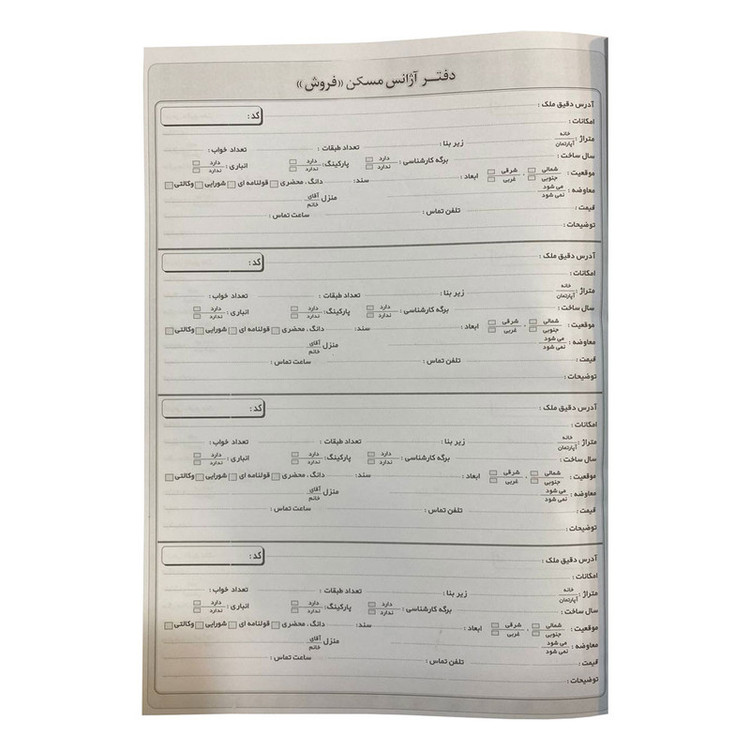 دفتر آژانس مسکن «فروش»
آدرس دقیق ملک : کد :
امکانات :
متراژ : خانه آپارتمان زیر بنا : تعداد طبقات : تعداد خواب :
سال ساخت : برگه کارشناسی : دارد ندارد پارکینگ : دارد ندارد انباری : دارد ندارد
موقعیت : شمالی جنوبی ، شرقی غربی ابعاد : سند: دانگ ، محضری قولنامه ای شورایی وکالتی
معاوضه : می شود نمی شود منزل آقای خانم
قیمت : تلفن تماس : ساعت تماس :
توضیحات :
آدرس دقیق ملک : کد :
امکانات :
متراژ : خانه آپارتمان زیر بنا : تعداد طبقات : تعداد خواب :
سال ساخت : برگه کارشناسی : دارد ندارد پارکینگ : دارد ندارد انباری : دارد ندارد
موقعیت : شمالی جنوبی ، شرقی غربی ابعاد : سند: دانگ ، محضری قولنامه ای شورایی وکالتی
معاوضه : می شود نمی شود منزل آقای خانم
قیمت : تلفن تماس : ساعت تماس :
توضیحات :
آدرس دقیق ملک : کد :
امکانات :
متراژ : خانه آپارتمان زیر بنا : تعداد طبقات : تعداد خواب :
سال ساخت : برگه کارشناسی : دارد ندارد پارکینگ : دارد ندارد انباری : دارد ندارد
موقعیت : شمالی جنوبی ، شرقی غربی ابعاد : سند: دانگ ، محضری قولنامه ای شورایی وکالتی
معاوضه : می شود نمی شود منزل آقای خانم
قیمت : تلفن تماس : ساعت تماس :
توضیحات :
آدرس دقیق ملک : کد :
امکانات :
متراژ : خانه آپارتمان زیر بنا : تعداد طبقات : تعداد خواب :
سال ساخت : برگه کارشناسی : دارد ندارد پارکینگ : دارد ندارد انباری : دارد ندارد
موقعیت : شمالی جنوبی ، شرقی غربی ابعاد : سند: دانگ ، محضری قولنامه ای شورایی وکالتی
معاوضه : می شود نمی شود منزل آقای خانم
قیمت : تلفن تماس : ساعت تماس :
توضیحات :